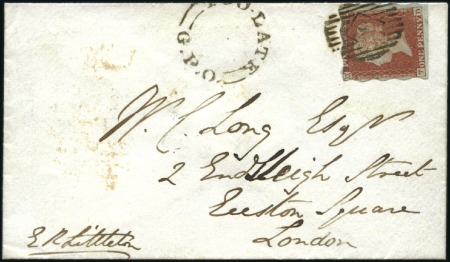 TOO.LATE
G.P.O
ONE PENNY
W. C. Long Esqr
2 Endsleigh Street
Euston Square
London
E R Littleton